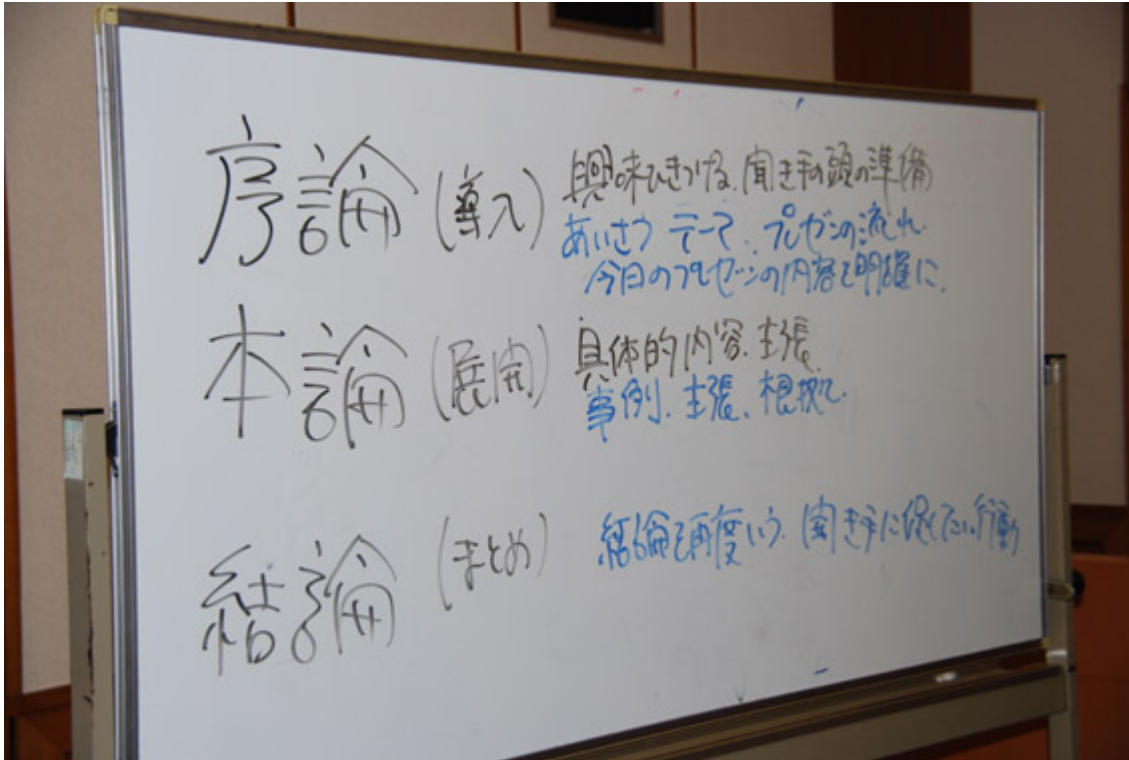 序論(導入) 興味ひきつける、聞き手の頭の準備
あいさつ テーマ、プレゼンの流れ、
今日のプレゼンの内容を明確に、
本論(展開) 具体的内容、主張
事例、主張、根拠
結論(まとめ) 結論を再度いう、聞き手に促したい行動